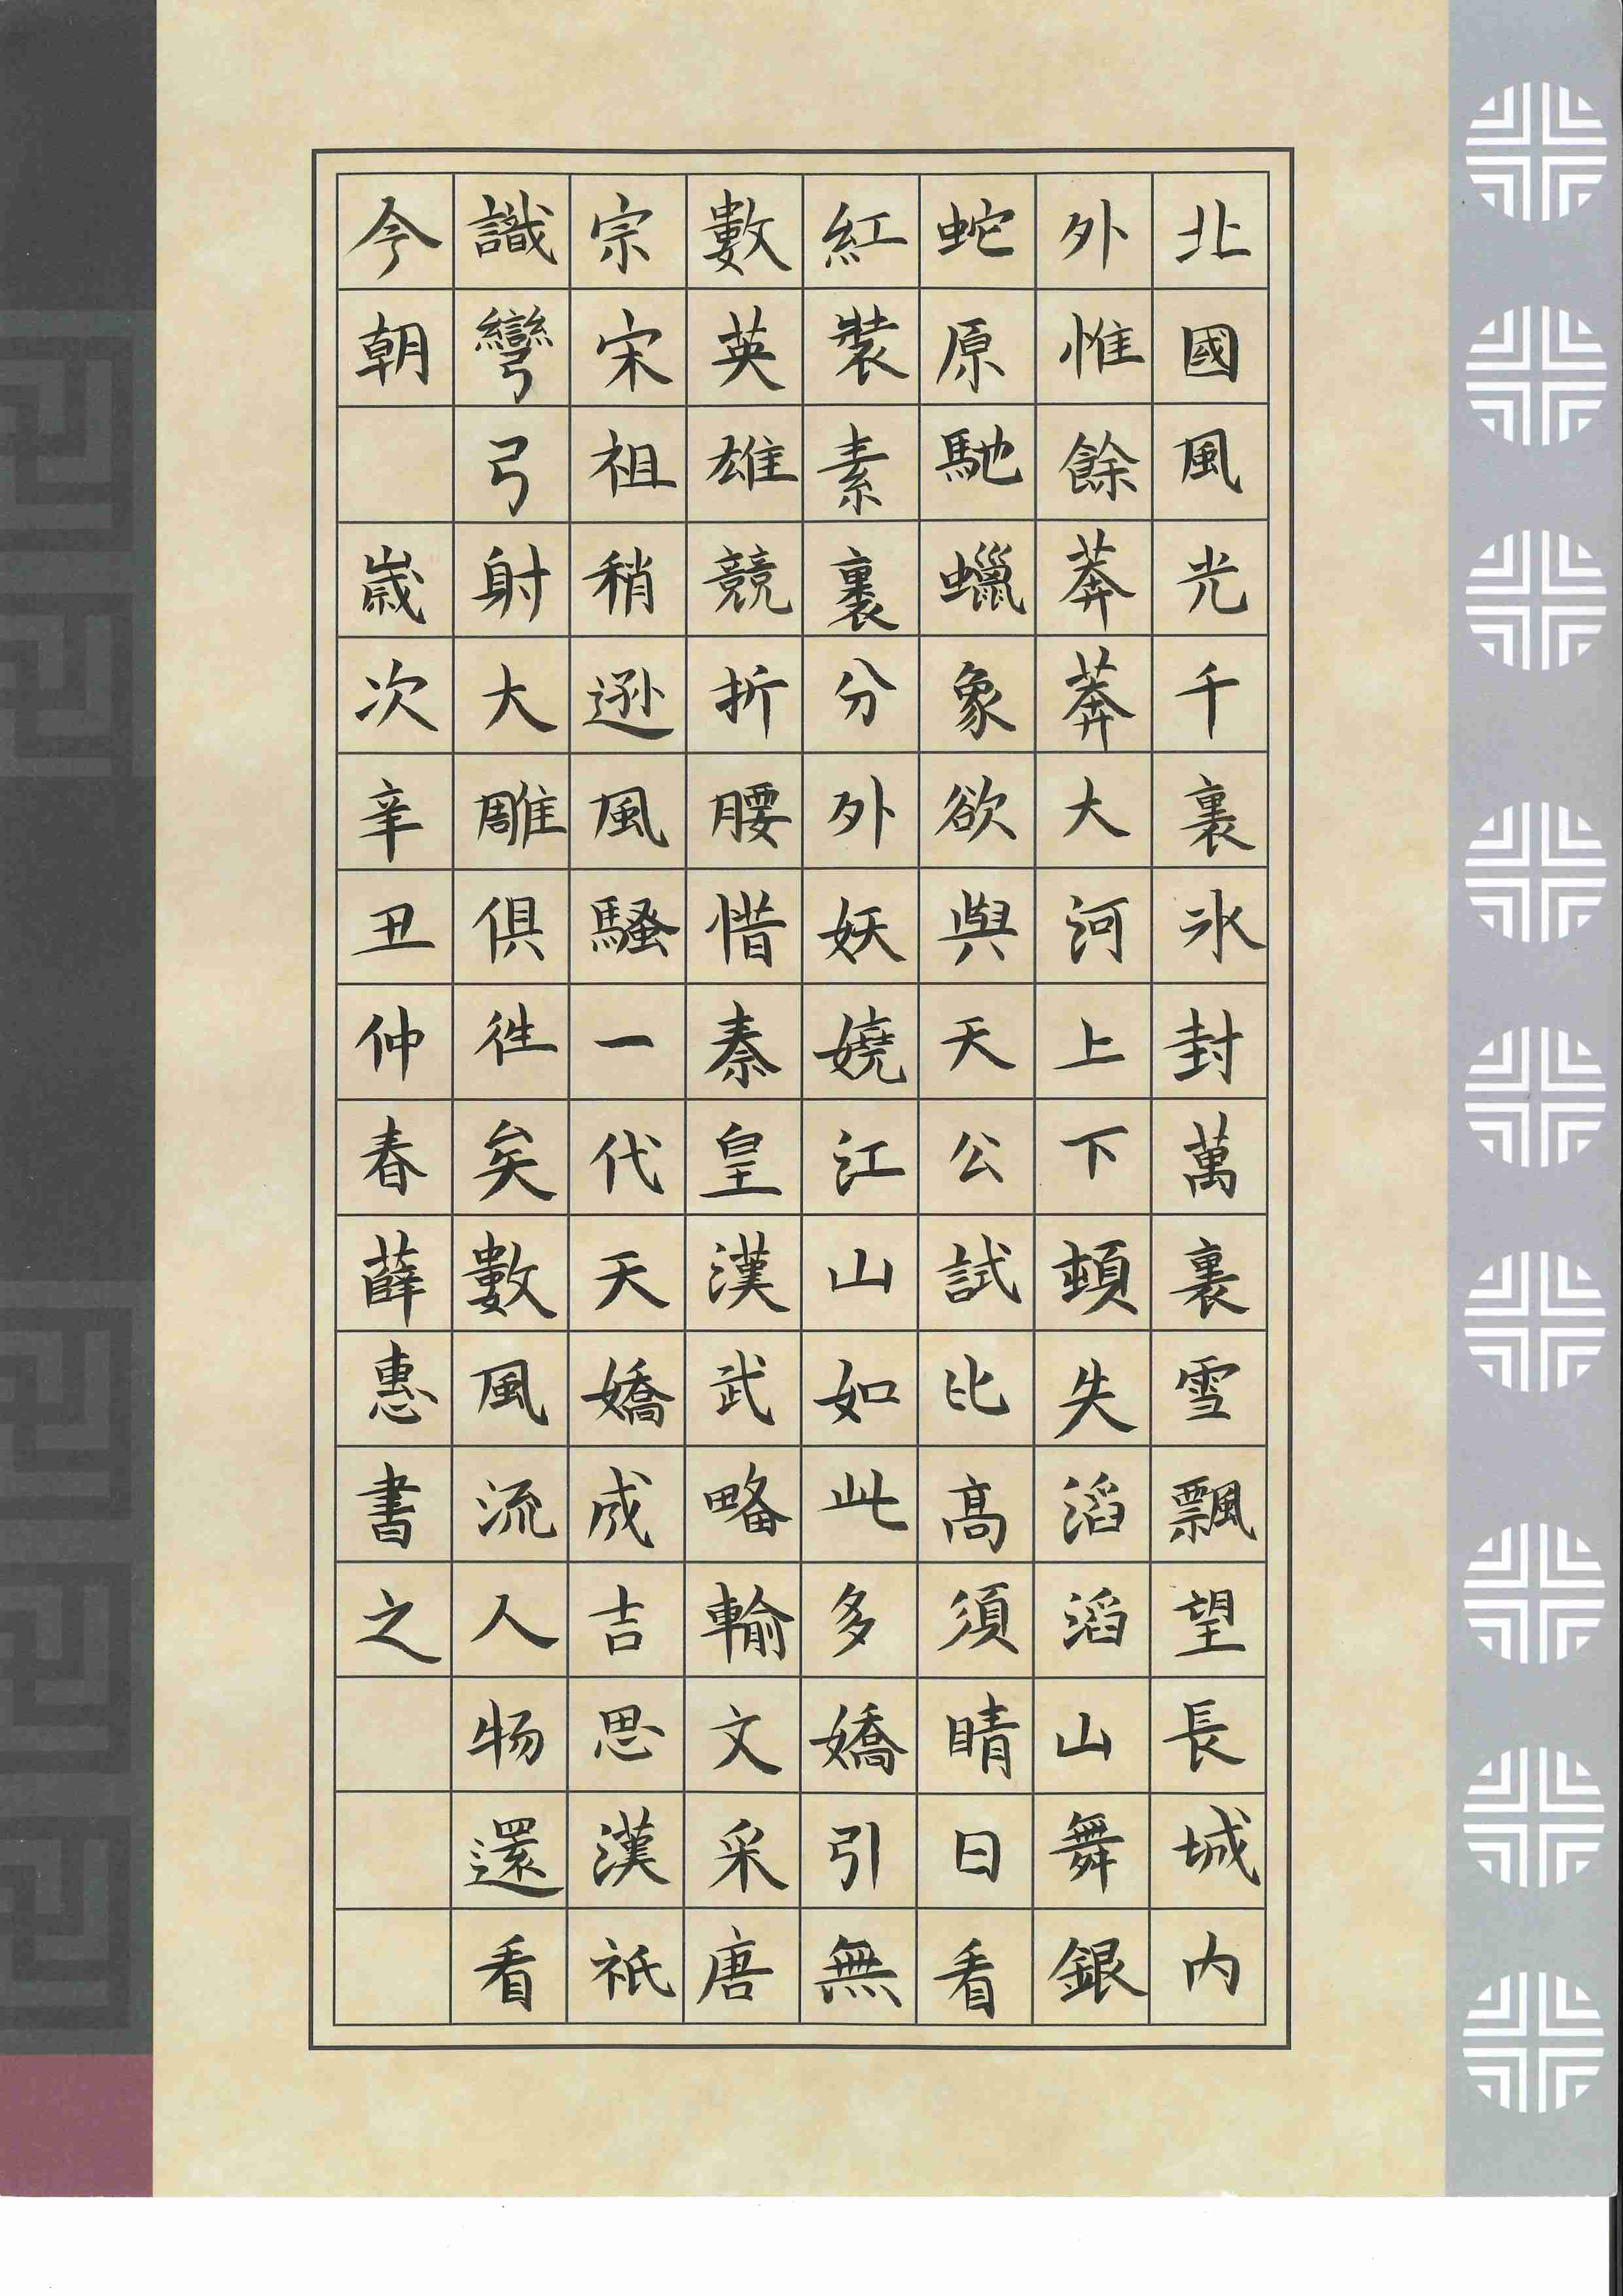 北國風光千裏氷封萬裏雪飄望長城内
外惟餘莽莽大河上下頓失滔滔山舞銀
蛇原馳蠟象欲與天公試比高須晴日看
紅裝素裹分外妖嬈江山如此多嬌引無
數英雄競折腰惜秦皇漢武略輸文采唐
宗宋祖稍遜風騷一代天嬌成吉思漢祇
識彎弓射大雕俱徃矣數風流人物還看
今朝 歲次辛丑仲春薛惠書之